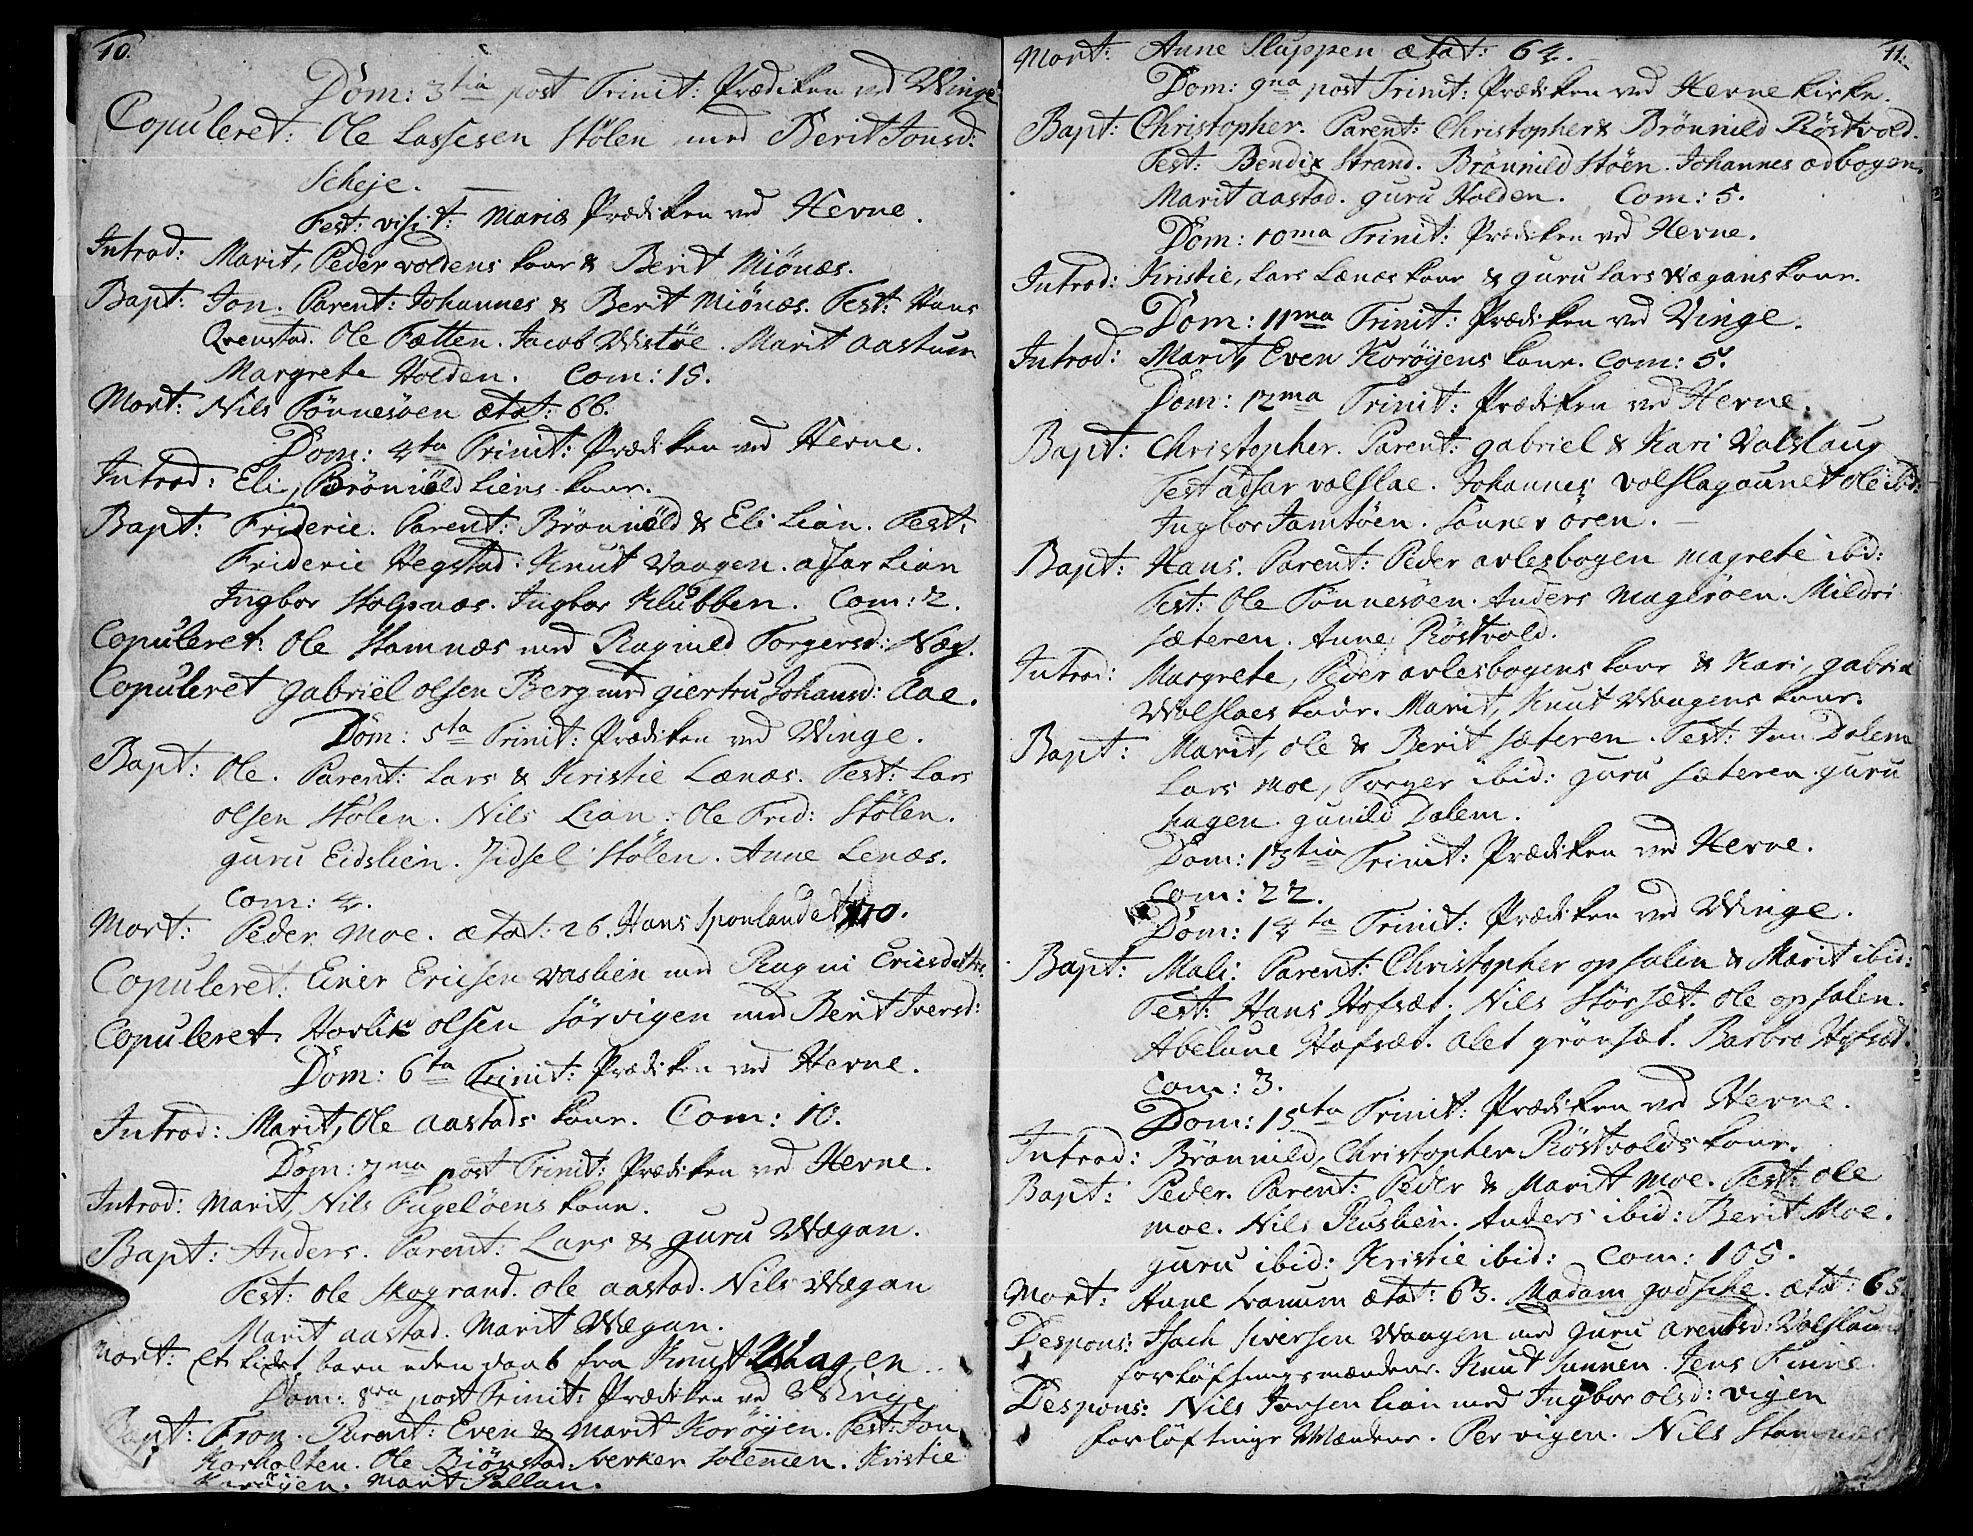 10.
Dom: 3tia post Trinit: Prædiken ved Winge
Copuleret: Ole Lassesen Stølen med Berit Jonsd:
Scheje.
Fest: visit: Mariæ Prædiken ved Hevne.
Introd: Marit, Peder voldens kone & Berit Miönæs.
Bapt: Jon. Parent: Johannes & Berit Miönæs. Test: Hans
Qvenstad. Ole Fætten. Jacob Wistöe. Marit aastum
Margrete Holden. Com: 15.
Mort: Nils Tönnesöen ætat: 66.
Dom: 4ta Trinit: Prædiken ved Hevne.
Introd: Eli, Brönnild Liens kone.
Bapt: Frideric. Parent: Brönnild & Eli Lian. Test:
Frideric Hegstad. Knut Vaagen. adsar Lian
Ingbor Stolpnæs. Ingbor Klubben. Com: 2.
Copuleret: Ole Stamnæs med Ragnild Torgersd: Næs.
Copuleret Gabriel olsen Berg med giertru Johansd: Aae.
Dom: 5ta Trinit: Prædiken ved Winge.
Bapt: Ole. Parent: Lars & Kristie Lænæs. Test: Lars
olsen Stølen. Nils Lian. Ole Frid: Stølen.
guru Eidslien. Zidsel Stølen. Anne Lenæs.
Com: 4.
Mort: Peder Moe. ætat: 26. Hans Sponlandet 70.
Copuleret: Einer Ericsen Vaslien med Ragni Ericsdatter.
Copuleret. Hovlik olsen Sörvigen med Berit Iversd:
Dom: 6ta Trinit: Prædiken ved Hevne.
Introd: Marit, Ole aastads kone. Com: 10.
Dom: 7ma post Trinit: Prædiken ved Hevne.
Introd: Marit, Nils Fugelöens kone.
Bapt: Anders. Parent: Lars & guru Wægan.
Test: Ole Skogrand. Ole aastad. Nils Wægan
Marit aastad. Marit Wægan.
Mort: Et lidet barn uden daab fra Knut Waagen
Dom: 8va post Trinit: Prædiken ved Winge
Bapt: Tron. Parent: Even & Marit Koröyen. Test: Jon
Korholten. Ole Biönstad. Sverker Solemen. Kristie
Koröyen. Marit Pallan.
11.
Mort: Anne Sluppen ætat: 64.
Dom: 9na post Trinit: Prædiken ved Hevne kirke.
Bapt: Christopher. Parent: Christopher & Brönnild Röstvold.
Test: Bendix Strand. Brönnild Stöen. Johannes odbogen.
Marit aastad. guru Holden. Com: 5.
Dom: 10ma Trinit: Prædiken ved Hevne.
Introd: Kristie, Lars Lænæs kone & guru Lars Wægans kone.
Dom: 11ma Trinit: Prædiken ved Vinge.
Introd: Marit, Even Koröyens kone. Com: 5.
Dom: 12ma Trinit: Prædiken ved Hevne.
Bapt: Christopher. Parent: gabriel & Kari Valslaug
Test adsar valslae. Johannes valslagaunet Ole ibid:
Ingbor Jamtöen. Sönnev ören.
Bapt: Hans. Parent: Peder avlesbogen magrete ibid:
Test: Ole Tönnesöen. Anders Mageröen. Mildri
Sæteren. Anne Röstvold.
Introd: Margrete, Peder avlesbogens kone & Kari, gabriel
Walslaes kone. Marit, Knut Waagens kone.
Bapt: Marit, Ole & Berit Sæteren. Test: Jon Dalem
Lars Moe, Torger ibid: guru Sæteren. guru
hagen. gunild Dalem.
Dom: 13tia Trinit: Prædiken ved Hevne.
Com: 22.
Dom: 14ta Trinit: Prædiken ved Winge.
Bapt: Mali. Parent: Christopher opsalen & Marit ibid:
Test: Hans Hofsæt. Nils Störsæt. Ole opsalen.
Abelune Hofsæt. Alet grönsæt. Barbro Hofsæt.
Com: 3.
Dom: 15ta Trinit: Prædiken ved Hevne.
Introd: Brönnild, Christopher Röstvolds kone.
Bapt: Peder. Parent: Peder & Marit Moe. Test: Ole
Moe. Nils Ruslien. Anders ibid: Berit Moe.
guru ibid: Kristie ibid: Com: 105.
Mort: Anne Svanum ætat: 63. Madam godsche. ætat: 65
Despons: Isach Siversen Waagen med guru Arentsd: Valslaug
forlöftningsmændene. Knut Sunnen. Jens Finne.
Despons: Nils Jonsen Lian med Ingbor olsd: vigen
forlöftings Mændene. Per vigen. Nils Stamnæs